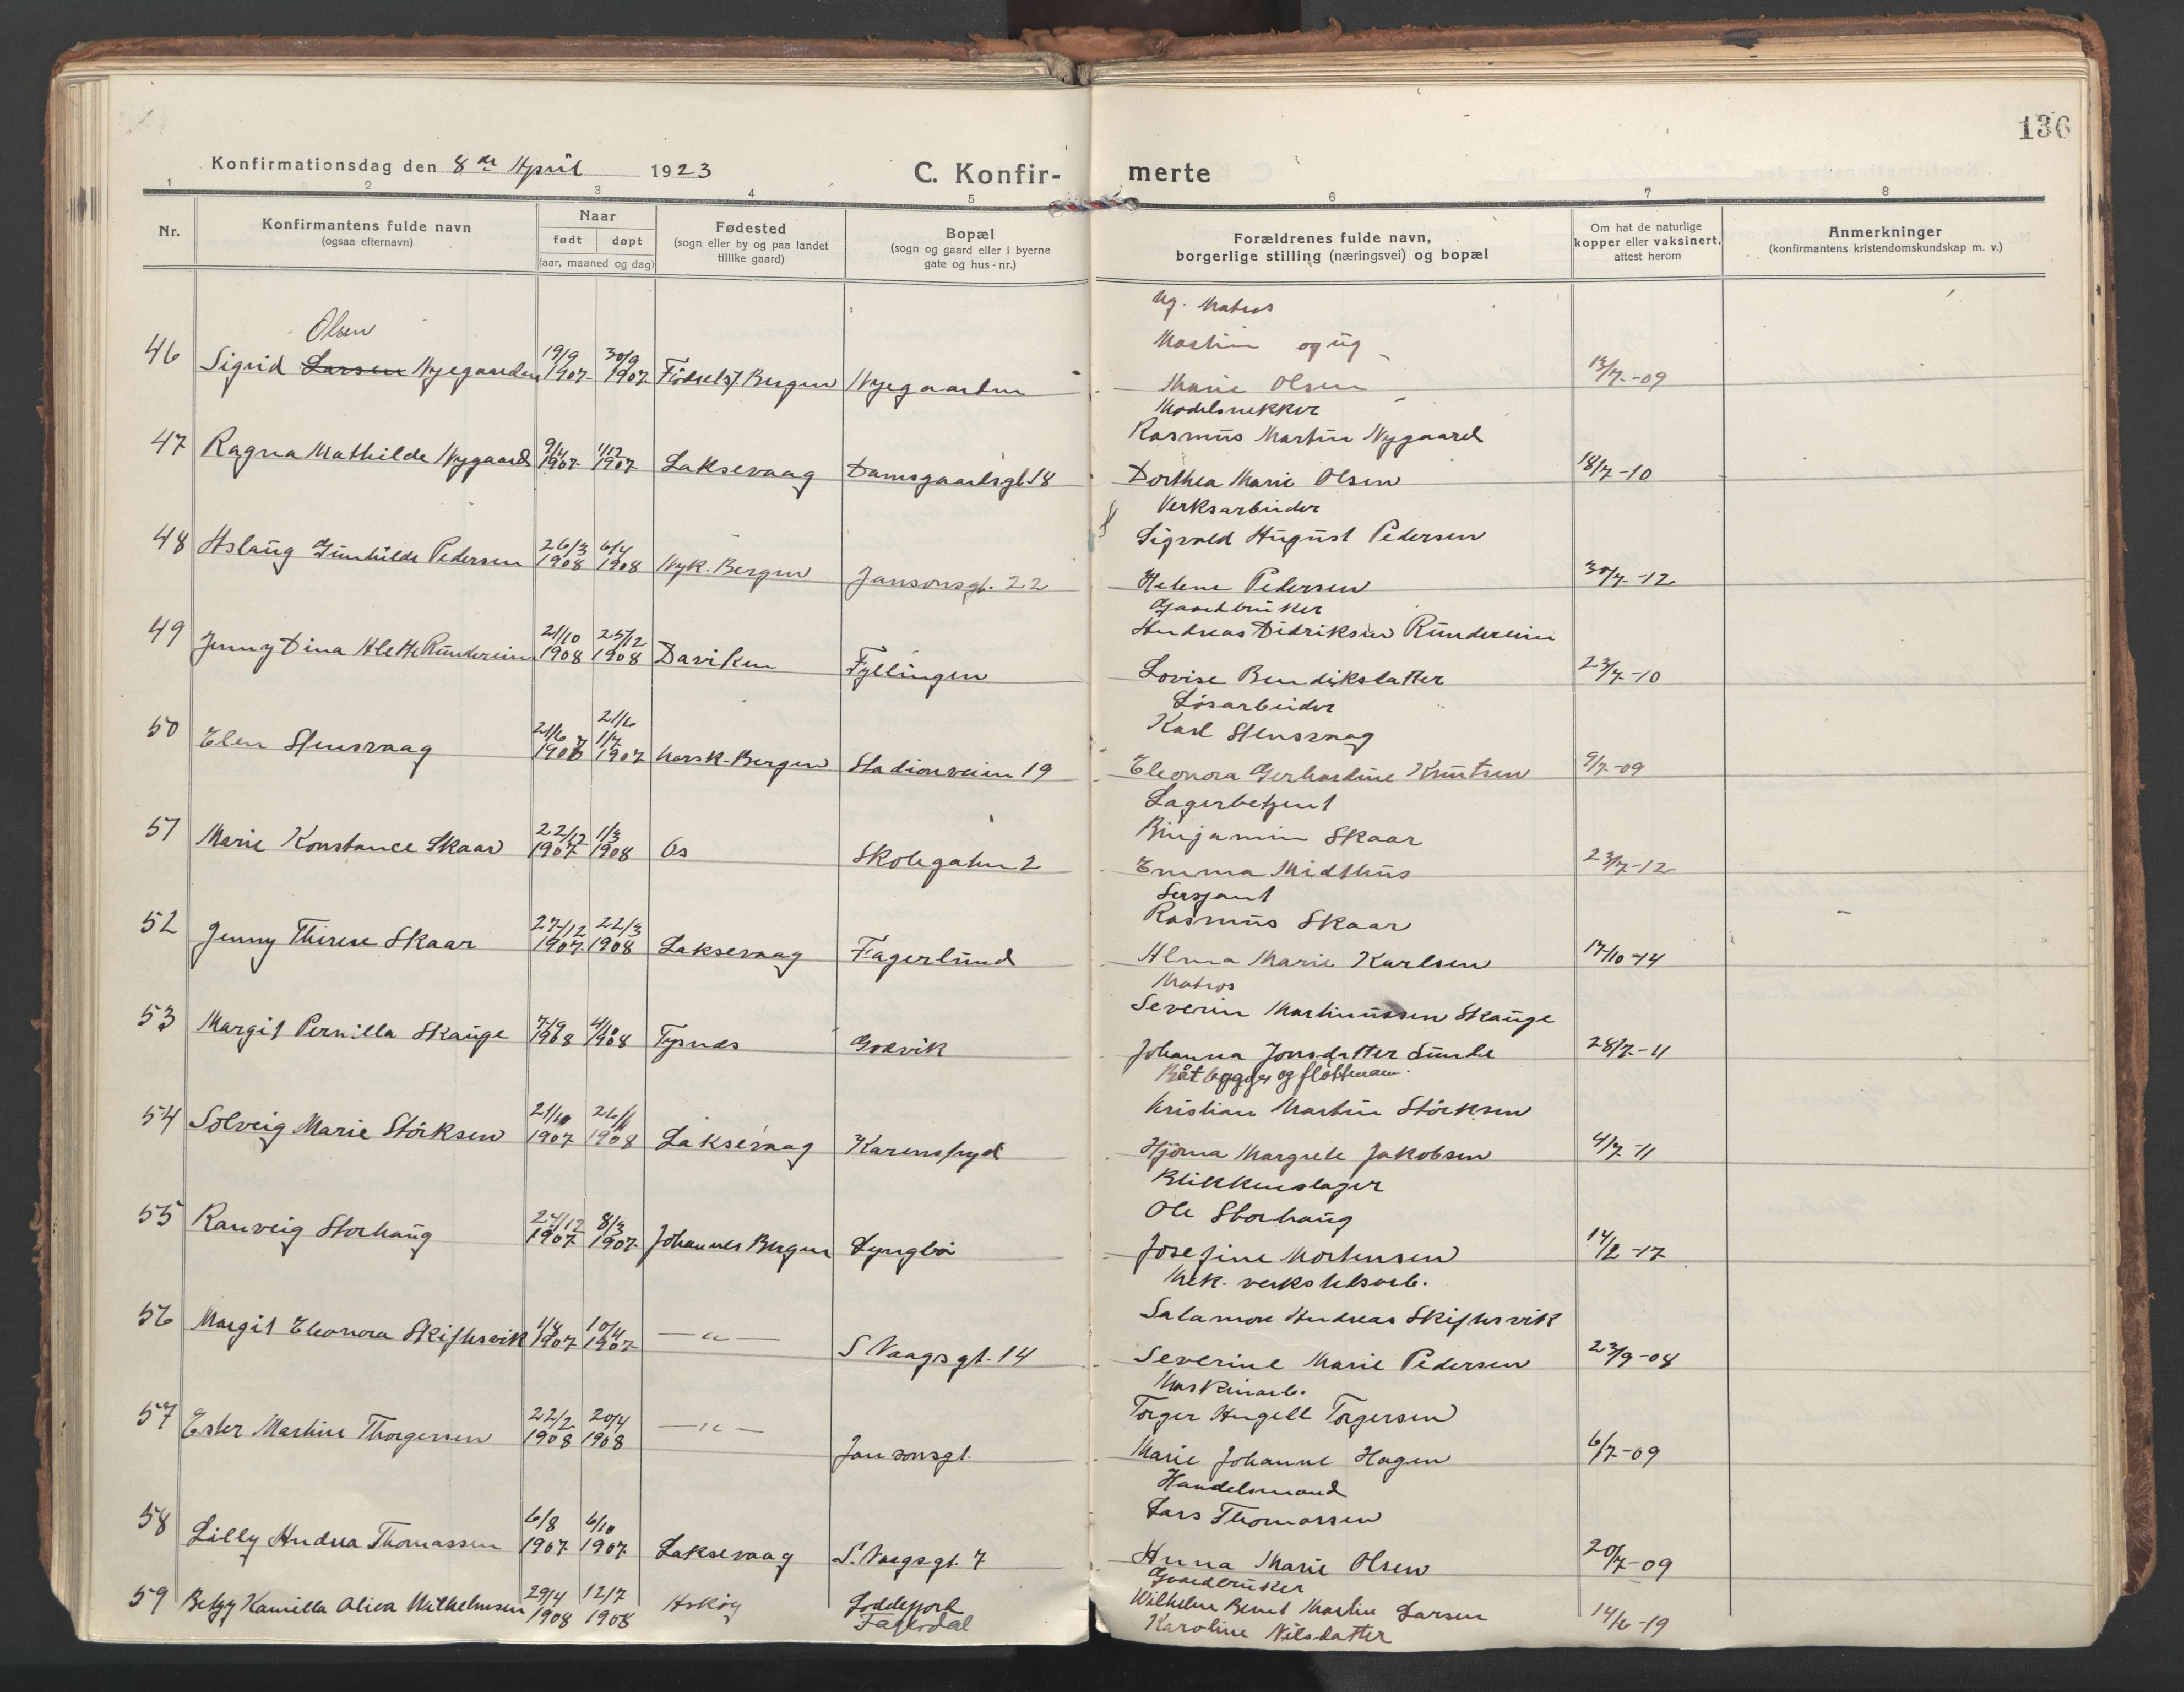 136
Konfirmationsdag den 8de April 1923
C. Konfir-
merte
1 2 3 4 5 6 7 8
Nr.
Konfirmantens fulde navn
(ogsaa efternavn)
Naar
født døpt
(aar, maaned og dag)
Fødested
(sogn eller by og paa landet
tillike gaard)
Bopæl
(sogn og gaard eller i byerne
gate og hus-nr.)
Forældrenes fulde navn,
borgerlige stilling (næringsvei) og bopæl
Om hat de naturlige
kopper eller vaksinert,
attest herom
Anmerkninger
(konfirmantens kristendomskundskap m. v.)
Ug. Matros
Olsen
Martin og ug
46 Sigrid Larsen Nyegaarden 19/9 1907 30/9 1907 Fødselst. Bergen Nyegaarden Marie Olsen 13/7-09
Modelsnekker
Rasmus Martin Nygaard
47 Ragna Mathilde Nygaard 9/4 1907 1/12 1907 Laksevaag Damsgaardsgt. 18 Dorthea Marie Olsen 18/7-10
Verksarbeider
Sigvald August Pedersen
48 Aslaug Gunhilde Pedersen 26/3 1908 6/4 1908 Nyk. Bergen Jansonsgt. 22 Helene Pedersen 30/7-12
Gaardbruker
Andreas Didriksen Rundereim
49 Jenny Dina Alette Rundereim 21/10 1908 25/12 1908 Daviken Fyllingen Lovise Bendiksdatter 23/7-10
Løsarbeider
Karl Stensvaag
50 Elen Stensvaag 21/6 1907 21/6 1/7 1907 Korsk. Bergen Stadionveien 19 Eleonora Gerhardine Knutsen 9/7-09
Lagerbetjent
Binjamin Skaar
51 Marie Konstance Skaar 22/12 1907 1/3 1908 Os Skolegaten 2 Emma Midthus 23/7-12
Sersjant
Rasmus Skaar
52 Jenny Therese Skaar 27/12 1907 22/3 1908 Laksevaag Fagerlund Alma Marie Karlsen 17/10-14
Matros
Severin Martinussen Skauge
53 Margit Pernilla Skauge 7/9 1908 4/10 1908 Tysnes Godvik Johanna Jonsdatter Sunde 28/7-11
Båtbygger og flottmann.
Kristian Martin Störksen
54 Solveig Marie Störksen 21/10 1907 26/1 1908 Laksevaag Karensfryd Hjörna Margrete Jakobsen 4/7-11
Blikkenslager
Ole Storhaug
55 Ranveig Storhaug 24/12 1907 8/3 1907 Johannes Bergen Lyngbö Josefine Mortensen 14/2-17
Mek. verkstedsarb.
Salamon Andreas Skiftesvik
56 Margit Eleonora Skiftesvik 1/8 1907 10/11 1907 — " — S Vaagsgt. 14 Severine Marie Pedersen 23/9-08
Maskinarb.
Torger Angell Torgersen
57 Ester Martine Thorgersen 22/2 1908 20/4 1908 — " — Jansonsgt. Marie Johanne Hagen 6/7-09
Handelsmand
Lars Thomassen
58 Lilly Andrea Thomassen 6/8 1907 6/10 1907 Laksevaag S. Vaagsgt. 7 Anna Marie Olsen 20/7-09
Gaardbruker
59 Betzy Kamilla Oliva Wilhelmsen 29/4 1908 12/7 1908 Askøy Loddefjord Wilhelm Bernt Martin Larsen 14/6-19
Fagerdal Karoline Nilsdatter